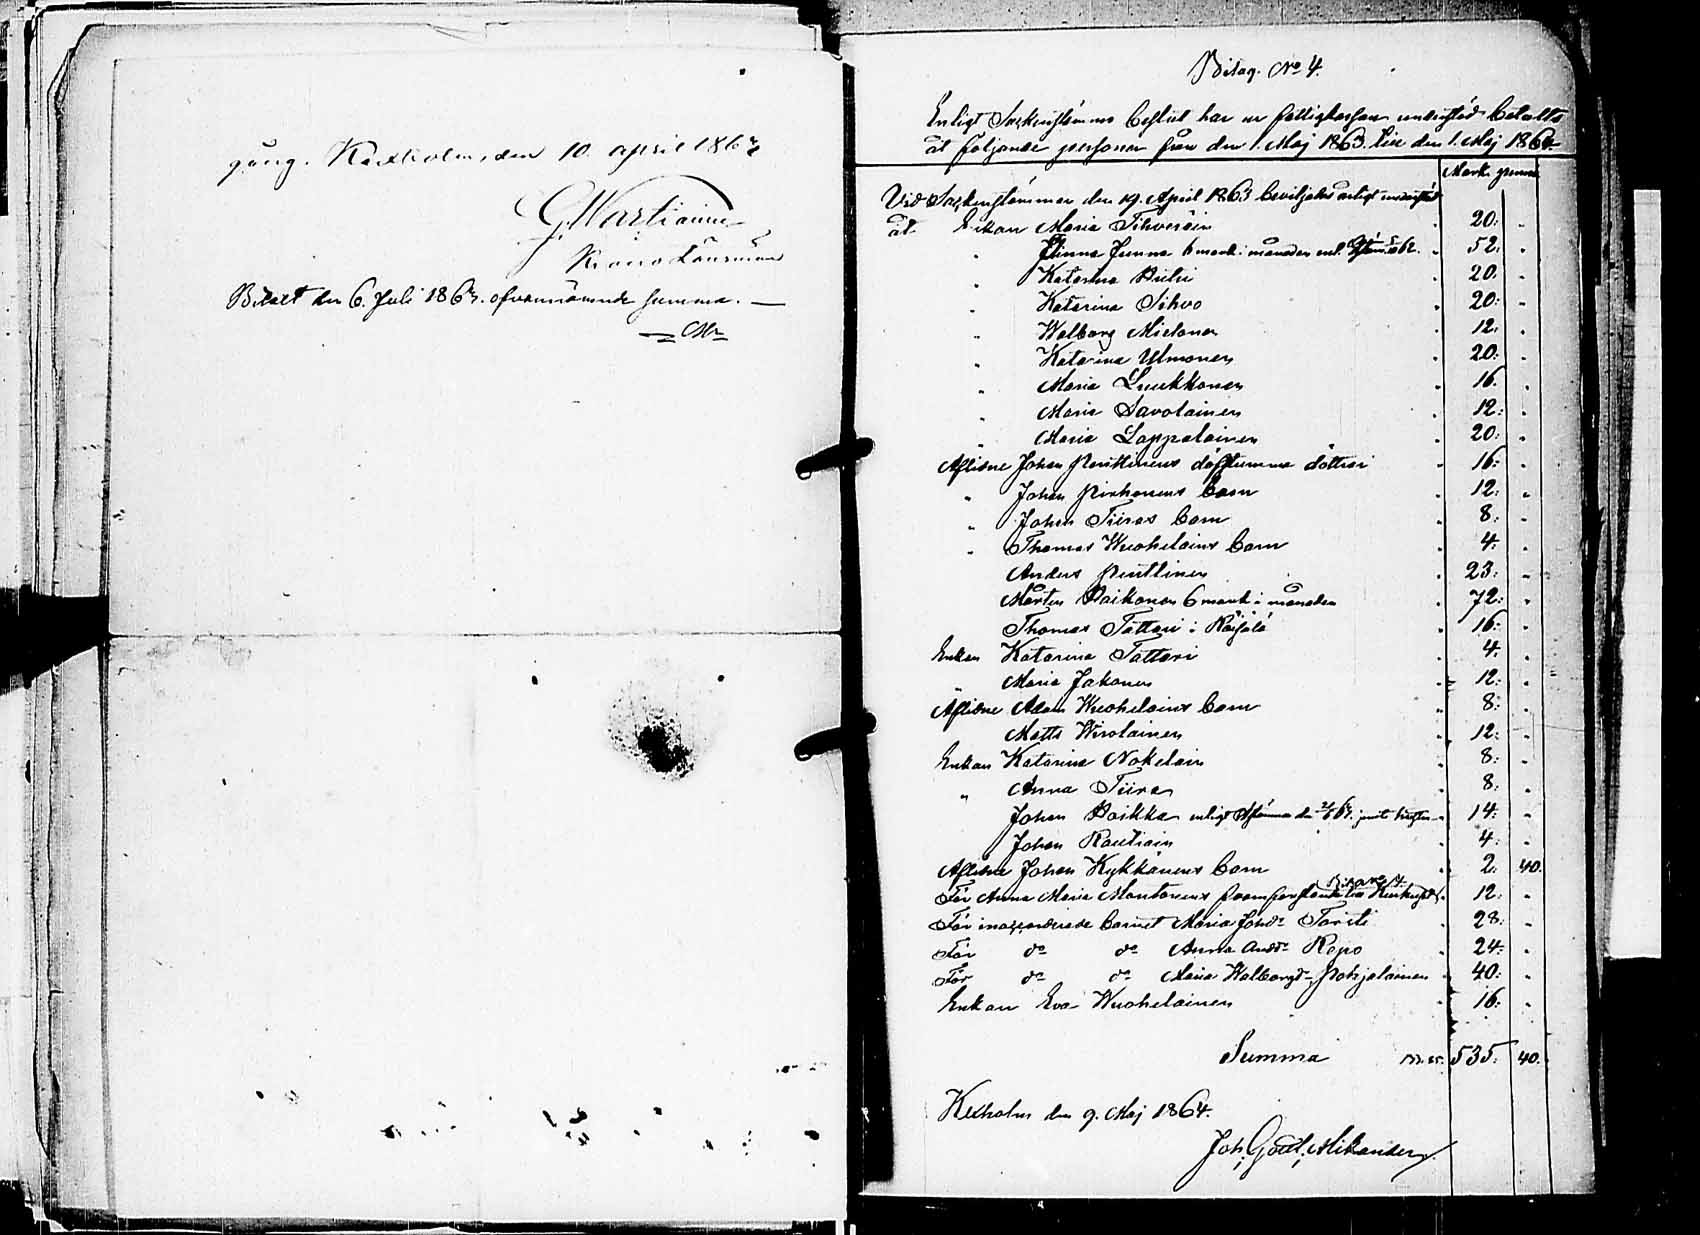 gång. Kexholm, den 10. April 1863
G. Martiainen
Krono Länsman
Betalt den 6. Juli 1863. ofvannämnde summa. —
Bilag. No 4.
Enligt Sockenstämmo beslut har ur fattigkassan understöd betalts
åt följande personer från den 1. Maj 1863 till den 1. Maj 1864.
Mark. penni
Vid Sockenstämman den 19. April 1863 beviljades årligt understöd
åt Enkan Maria Tihveräin 20: "
" Anna Junna 6 mark i månaden enl. 52: "
" Katarina 20: "
" Katarina Sihvo 20: "
" Walborg Mielonen 12: "
" Katarina Ulmonen 20: "
" Maria Luukkonen 16: "
" Maria Savolainen 12: "
" Maria Lappalainen 20: "
Aflidne Johan Penttinens döfstumma dotter 16: "
" Johan Pirhonens barn 12: "
" Johan Tiiras barn 8: "
" Thomas Wuohelains barn 4: "
Anders Penttinen 23: "
Mårten Paikonen 6 mark i månaden 72: "
Thomas Tattari i Räisälä 16: "
Enkan Katarina Tattari 4: "
" Maria Jakonen 12: "
Aflidne Adam Wuohelains barn 8: "
Matts Wirolainen 12: "
Enkan Katarina Nokelain 8: "
" Anna Tiira 8: "
Johan Poikka enligt Sstämma den 14: "
Johan Rautiain 4: "
Aflidne Johan Kykkänens barn 2: 40.
För Anna Maria Montonens 12: "
För inackorderade barnet Maria Johdr Torsti 28: "
För do do Anna Anddr Repo 24: "
För do do Maria Walborgdr Pohjalainen 40: "
Enkan Eva Wuohelainen 16: "
Summa 535: 40.
Kexholm den 9. Maj 1864.
Joh. Gottl. Mikander